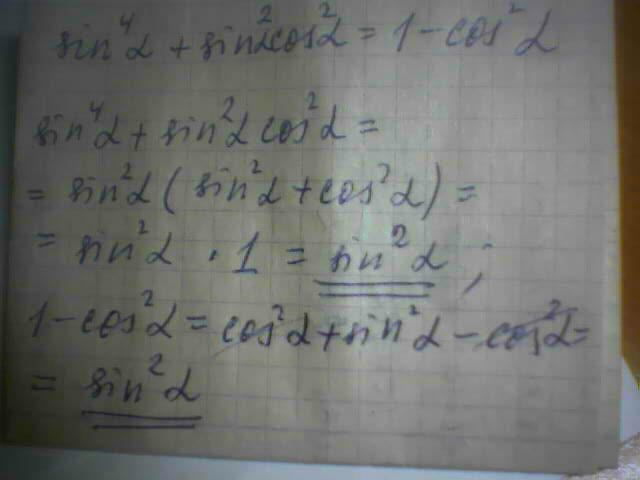 sin⁴α + sin²α cos²α = 1 - cos²α
sin⁴α + sin²α cos²α =
= sin²α ( sin²α + cos²α ) =
= sin²α · 1 = sin²α ;
1 - cos²α = cos²α + sin²α - cos²α =
= sin²α